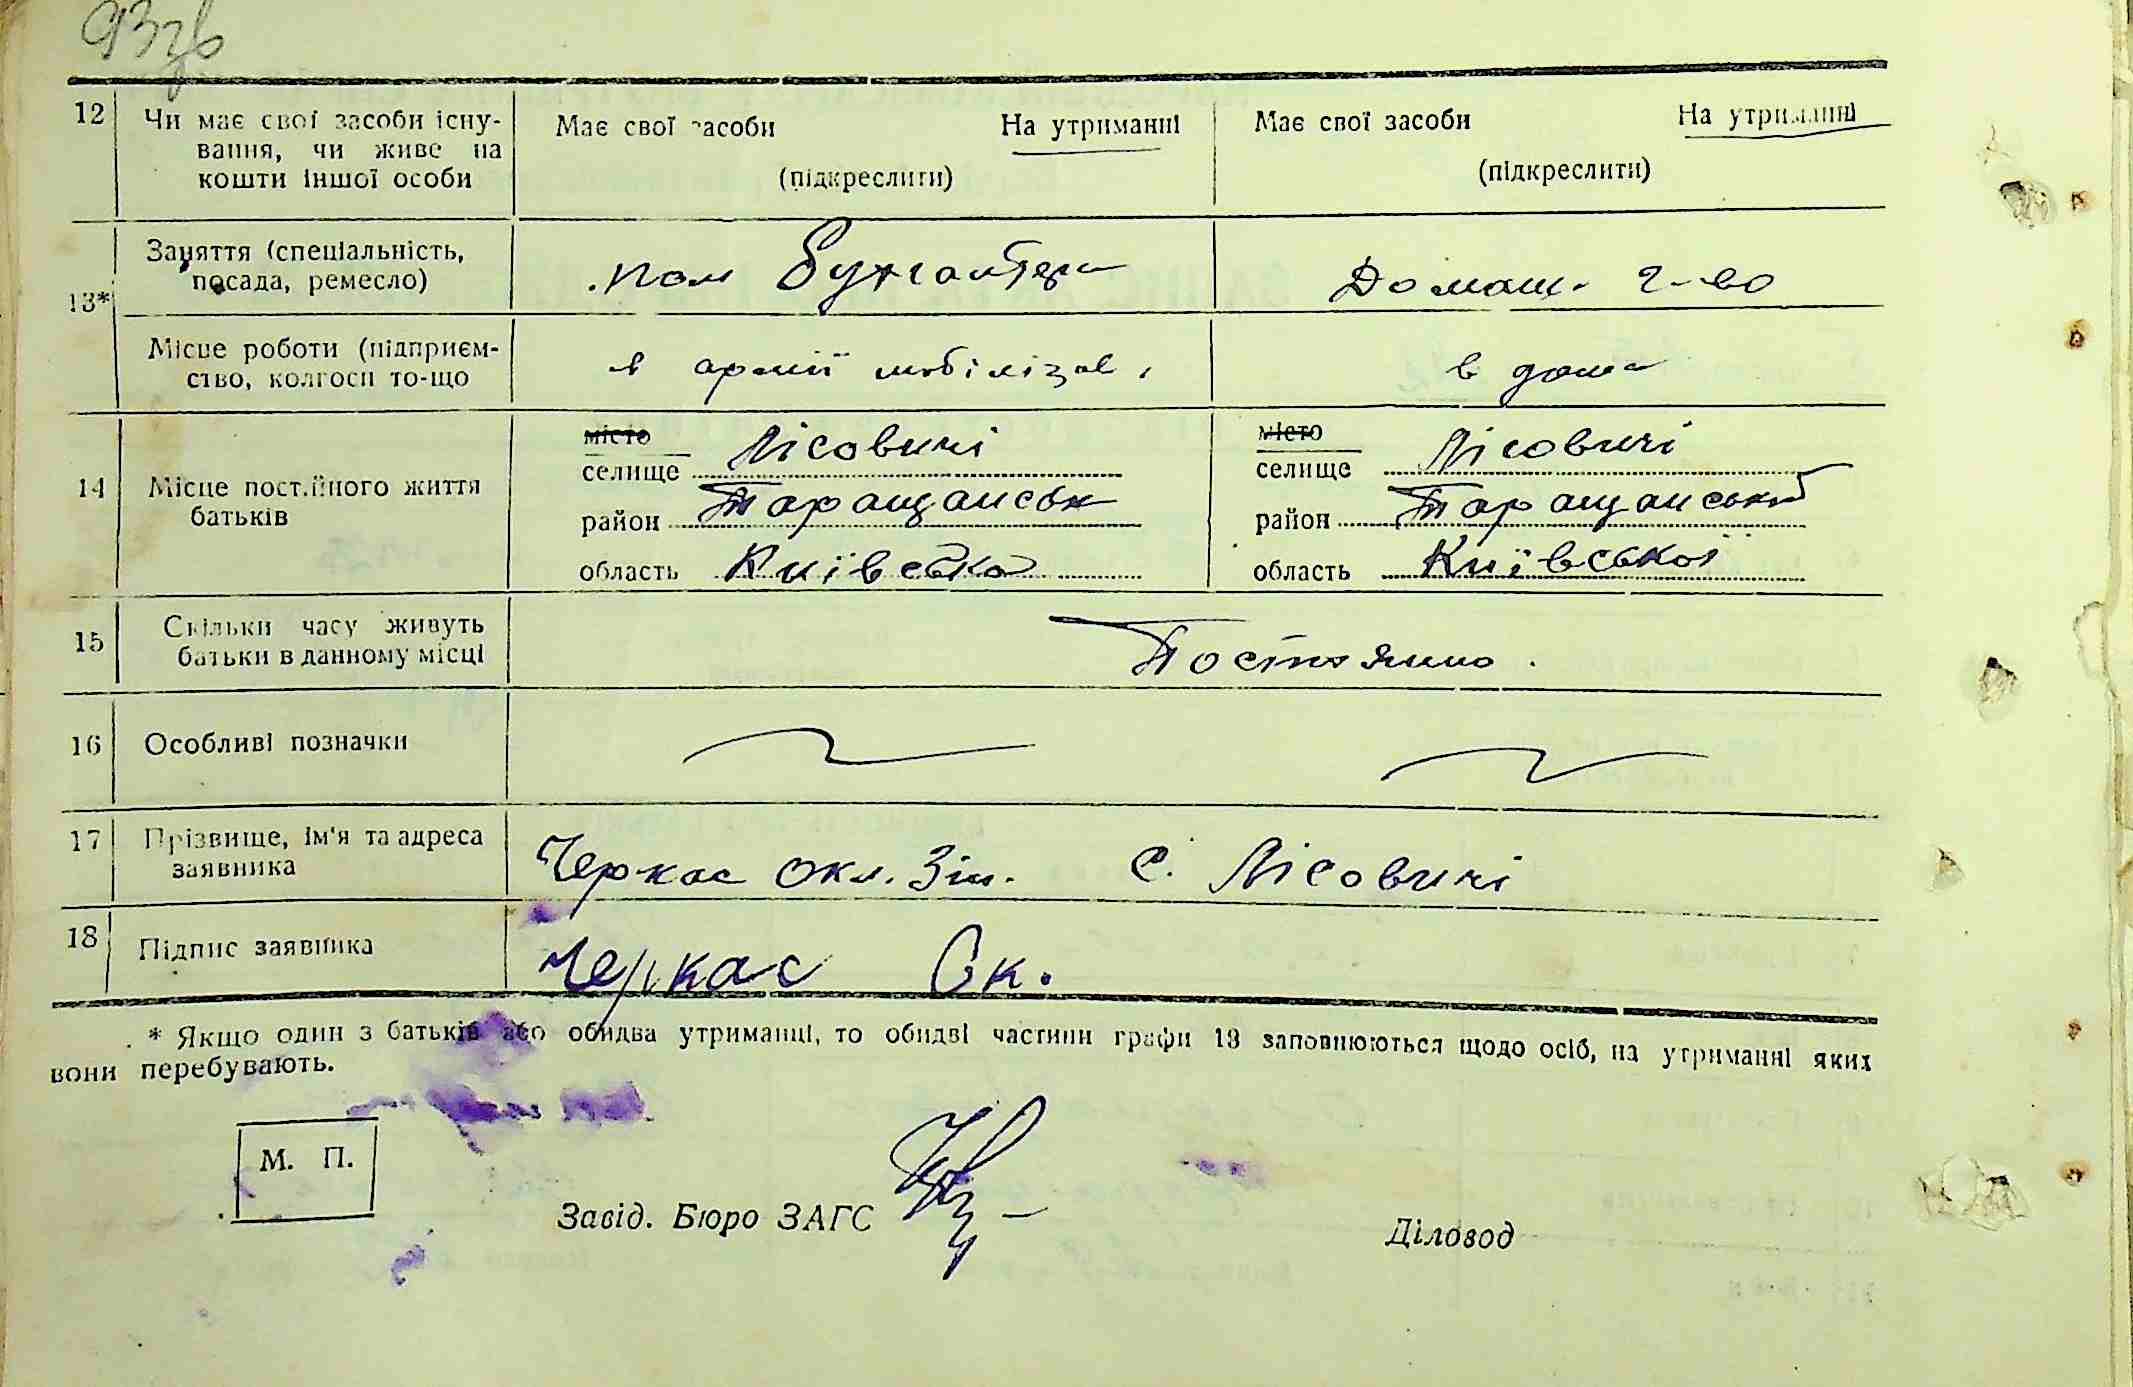 93зв
12 Чи має свої засоби існу- Має свої засоби На утриманні Має свої засоби На утриманні
вання, чи живе на
кошти іншої особи (підкреслити) (підкреслити)
Заняття (спеціальність, пом бухгалтера Домаш. г-во
посада, ремесло)
13*
Місце роботи (підприєм- в армії мобілізов. в дома
ство, колгосп то-що
місто Лісовичі місто Лісовичі
селище селище
14 Місце постійного життя район Таращанськ район Таращанський
батьків
область Київська область Київської
15 Скільки часу живуть Постоянно.
батьки в данному місці
16 Особливі позначки
17 Прізвище, ім'я та адреса Черкас Окл. Зін. С. Лісовичі
заявника
18 Підпис заявника Черкас Ок.
* Якщо один з батьків або обидва утриманці, то обидві частини графи 13 заповнюються щодо осіб, на утриманні яких
вони перебувають.
М. П.
Завід. Бюро ЗАГС Діловод